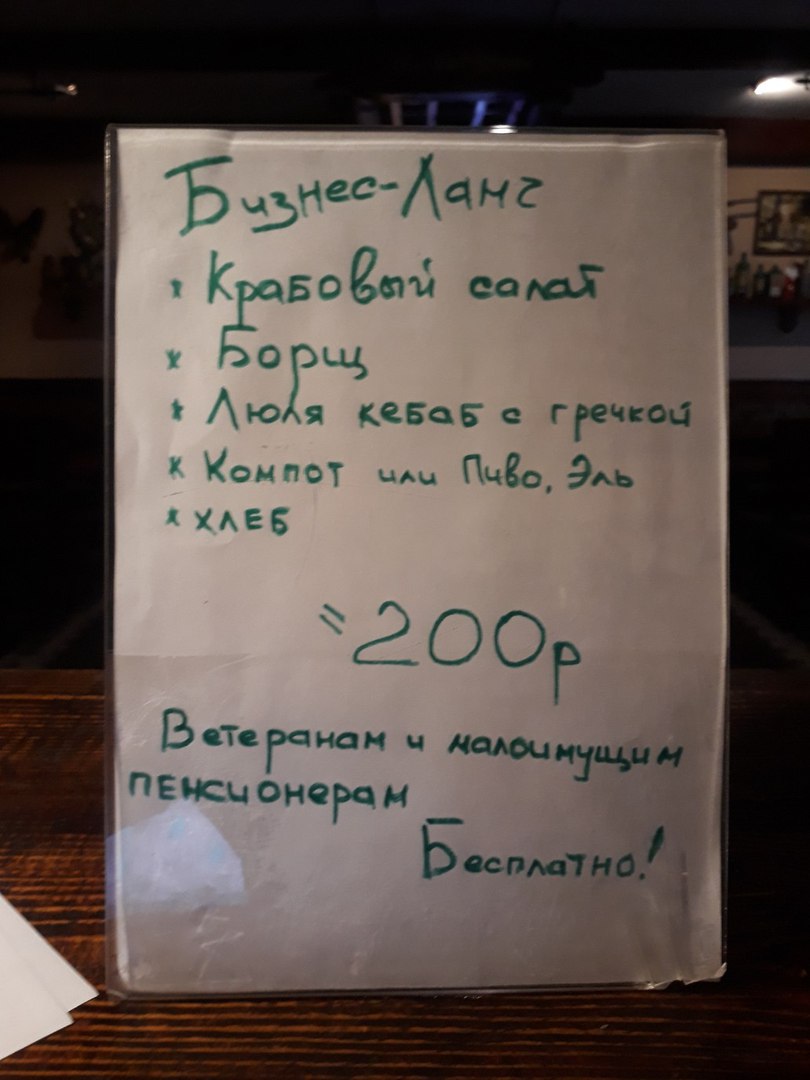 Бизнес-Ланч
* Крабовый салат
* Борщ
* Люля кебаб с гречкой
* Компот или Пиво, Эль
* ХЛЕБ
=200р
Ветеранам и малоимущим
пенсионерам
Бесплатно!